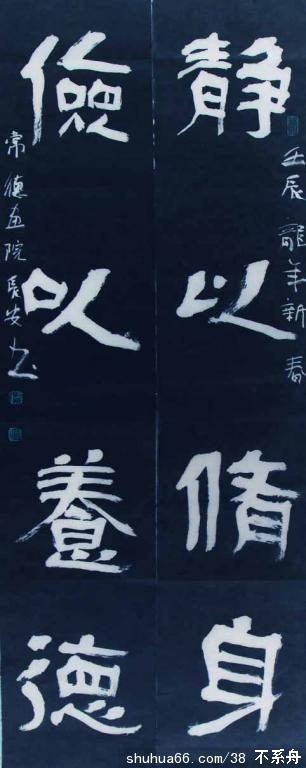 静以脩身
壬辰龍年新春
儉以養德
常德畫院辰安书
shuhua66.com/38 不系舟